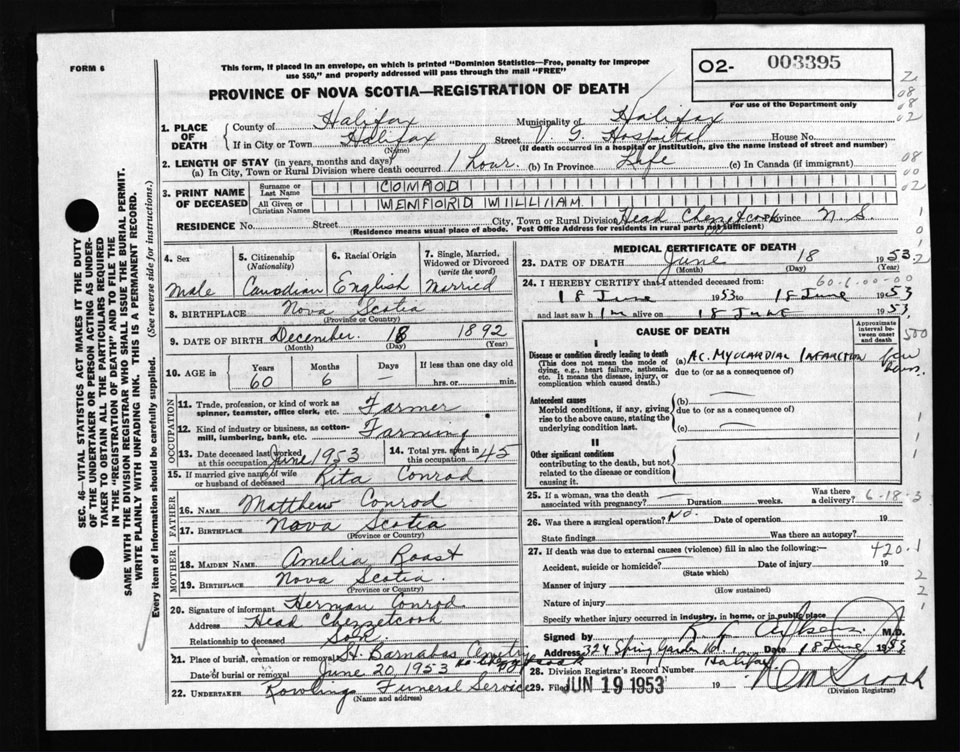 FORM 6
This form, if placed in an envelope, on which is printed "Dominion Statistics—Free, penalty for improper
use $50," and properly addressed will pass through the mail "FREE"
PROVINCE OF NOVA SCOTIA—REGISTRATION OF DEATH
02- 003395
For use of the Department only
1. PLACE OF DEATH
County of Halifax Municipality of Halifax
If in City or Town Halifax Street V. G. Hospital House No.
(Name) (If death occurred in a hospital or institution, give the name instead of street and number)
2. LENGTH OF STAY (in years, months and days)
(a) In City, Town or Rural Division where death occurred 1 hour. (b) in Province Life (c) In Canada (if immigrant)
3. PRINT NAME OF DECEASED
Surname or Last Name COMROD
All Given or Christian Names WENFORD WILLIAM
RESIDENCE No. Street City, Town or Rural Division Head Chezzetcook Province N. S.
(Residence means usual place of abode. Post Office Address for residents in rural parts not sufficient)
4. Sex
Male
5. Citizenship
(Nationality)
Canadian
6. Racial Origin
English
7. Single, Married,
Widowed or Divorced
(write the word)
Married
8. BIRTHPLACE Nova Scotia
(Province or Country)
9. DATE OF BIRTH December 18 1892
(Month) (Day) (Year)
10. AGE in
Years Months Days If less than one day
60 6 hrs. or min.
OCCUPATION
11. Trade, profession, or kind of work as
spinner, teamster, office clerk, etc. Farmer
12. Kind of industry or business, as cotton-
mill, lumbering, bank, etc. Farming
13. Date deceased last worked
at this occupation June 1953
14. Total yrs. spent in
this occupation 45
15. If married give name of wife
or husband of deceased Rita Conrod
FATHER
16. NAME Matthew Conrod
17. BIRTHPLACE Nova Scotia
(Province or Country)
MOTHER
18. MAIDEN NAME Amelia Roast
19. BIRTHPLACE Nova Scotia.
(Province or Country)
20. Signature of informant Herman Conrod
Address Head Chezzetcook
Relationship to deceased Son.
21. Place of burial, cremation or removal St. Barnabas Cemetry
Date of burial or removal June 20, 1953
22. UNDERTAKER Rowlings Funeral Service
(Name and address)
MEDICAL CERTIFICATE OF DEATH
23. DATE OF DEATH June 18 1953
(Month) (Day) (Year)
24. I HEREBY CERTIFY that I attended deceased from:
18 June 1953 to 18 June 1953
and last saw h im alive on 18 June 1953.
CAUSE OF DEATH
Approximate interval between onset and death
I
Disease or condition directly leading to death
(This does not mean the mode of
dying, e.g., heart failure, asthenia,
etc. It means the disease, injury, or
complication which caused death.)
(a) AC. MYOCARDIAL INFARCTION
due to (or as a consequence of)
Antecedent causes
Morbid conditions, if any, giving
rise to the above cause, stating the
underlying condition last.
(b)
due to (or as a consequence of)
(c)
II
Other significant conditions
contributing to the death, but not
related to the disease or condition
causing it.
25. If a woman, was the death
associated with pregnancy? Duration weeks. Was there a delivery?
6-18-3
26. Was there a surgical operation? No. Date of operation 19
State findings Was there an autopsy?
27. If death was due to external causes (violence) fill in also the following:— 420.1
Accident, suicide or homicide? Date of injury 19
(State which)
Manner of injury
(How sustained)
Nature of injury
Specify whether injury occurred in industry, in home, or in public place
Signed by M.D.
Address 324 Spring Garden Rd. Date 18 June 1953
Halifax
28. Division Registrar's Record Number
29. Filed JUN 19 1953 19
(Division Registrar)
SEC. 46—VITAL STATISTICS ACT MAKES IT THE DUTY
OF THE UNDERTAKER OR PERSON ACTING AS UNDER-
TAKER TO OBTAIN ALL THE PARTICULARS REQUIRED
IN THE "REGISTRATION OF DEATH" AND TO FILE THE
SAME WITH THE DIVISION REGISTRAR WHO SHALL ISSUE THE BURIAL PERMIT.
WRITE PLAINLY WITH UNFADING INK. THIS IS A PERMANENT RECORD.
Every item of information should be carefully supplied. (See reverse side for instructions.)